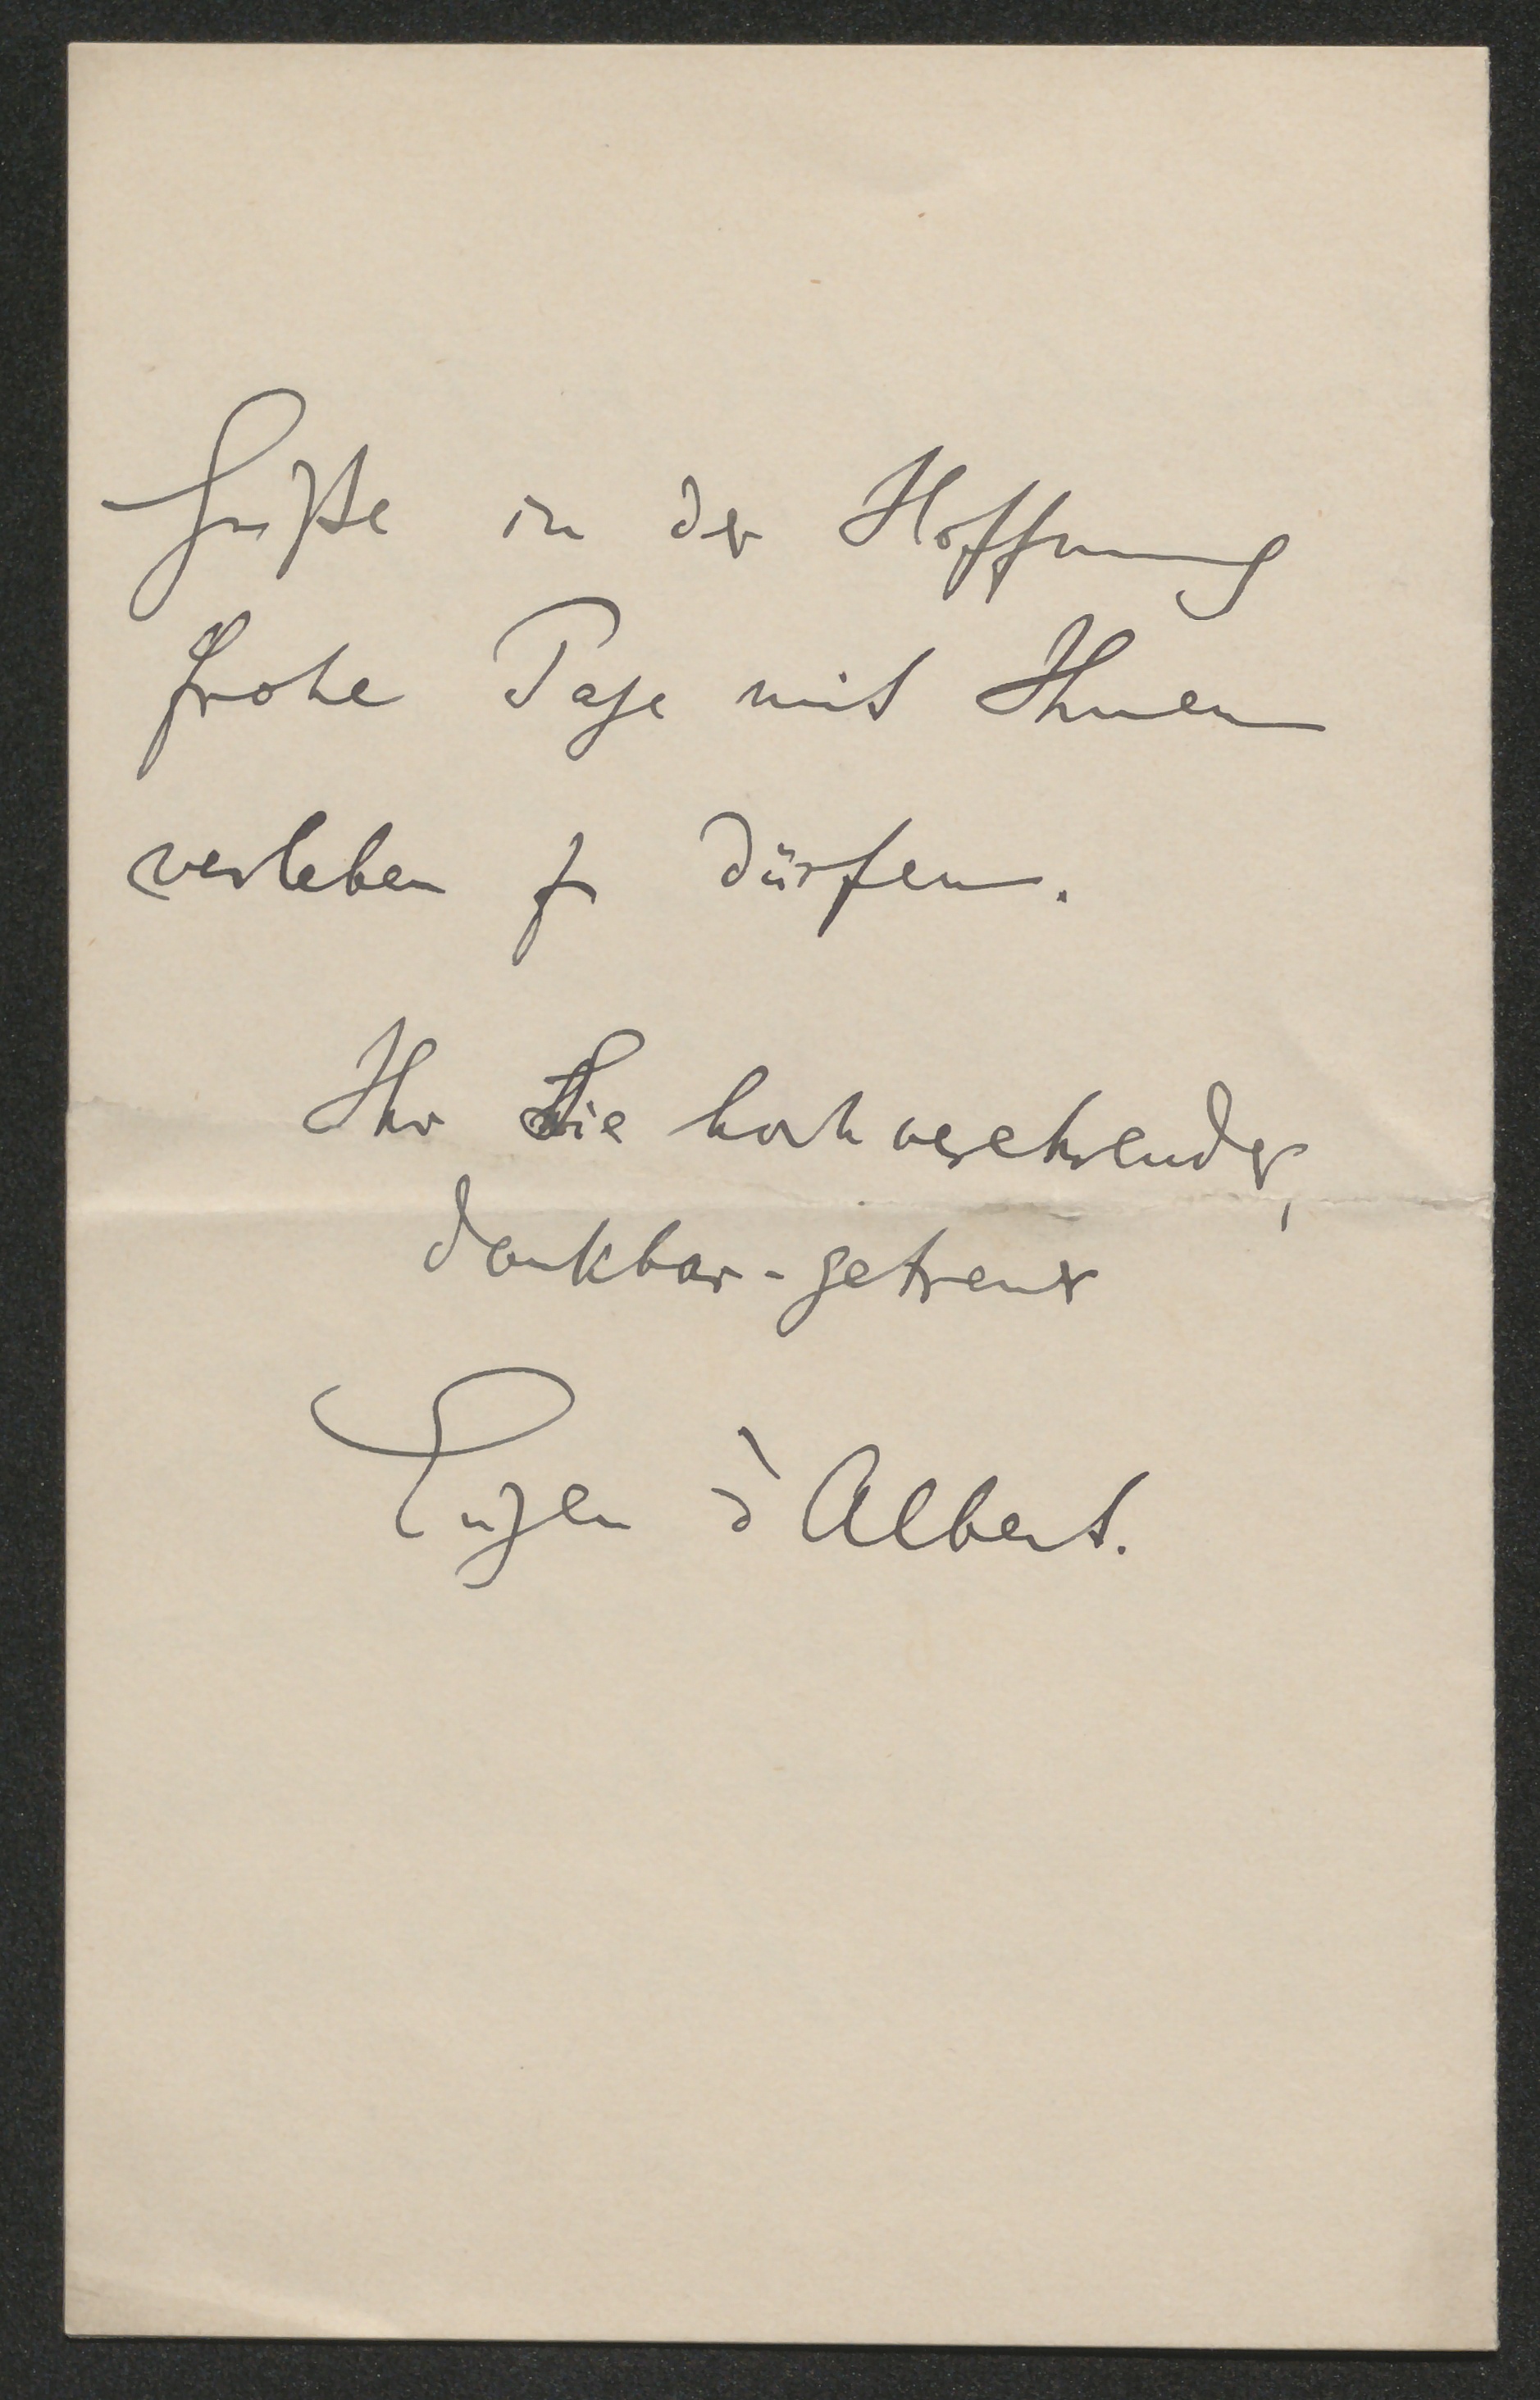 Grüße in der Hoffnung
frohe Tage mit Ihnen
verleben zu dürfen.
Ihr Sie hochverehrender,
dankbar-getreuer
Eugen d'Albert.